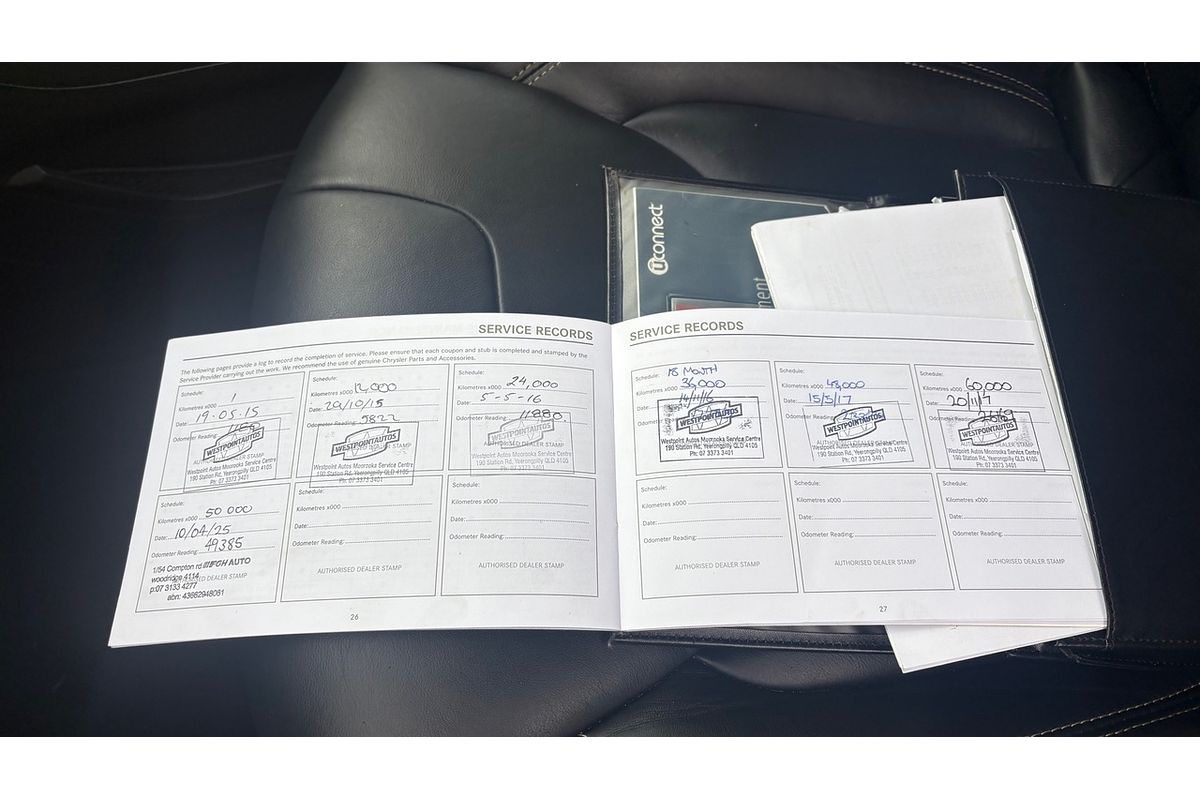 uconnect
SERVICE RECORDS
The following pages provide a log to record the completion of service. Please ensure that each coupon and stub is completed and stamped by the
Service Provider carrying out the work. We recommend the use of genuine Chrysler Parts and Accessories.
Schedule:
Kilometres x000 1
Date: 19.05.15
Odometer Reading:
WESTPOINTAUTOS
Westpoint Autos Moorooka Service Centre
190 Station Rd, Yeerongpilly QLD 4105
Ph: 07 3373 3401
Schedule:
Kilometres x000 12,000
Date: 29/10/15
Odometer Reading: 5822
WESTPOINTAUTOS
Westpoint Autos Moorooka Service Centre
190 Station Rd, Yeerongpilly QLD 4105
Ph: 07 3373 3401
Schedule:
Kilometres x000 24,000
Date: 5-5-16
Odometer Reading: 11880.
WESTPOINTAUTOS
AUTHORISED DEALER STAMP
Westpoint Autos Moorooka Service Centre
190 Station Rd, Yeerongpilly QLD 4105
Ph: 07 3373 3401
Schedule:
Kilometres x000 50 000
Date: 10/04/25
Odometer Reading: 49385
1/54 Compton rd FGH AUTO
woodridge 4114
AUTHORISED DEALER STAMP
p:07 3133 4277
abn: 43662948081
Schedule:
Kilometres x000
Date:
Odometer Reading:
AUTHORISED DEALER STAMP
Schedule:
Kilometres x000
Date:
Odometer Reading:
AUTHORISED DEALER STAMP
26
SERVICE RECORDS
Schedule: 18 MONTH
Kilometres x000 36,000
Date: 14/11/16
WESTPOINTAUTOS
Westpoint Autos Moorooka Service Centre
190 Station Rd, Yeerongpilly QLD 4105
Ph: 07 3373 3401
Schedule:
Kilometres x000 48,000
Date: 15/5/17
Odometer Reading:
WESTPOINTAUTOS
AUTHORISED DEALER STAMP
Westpoint Autos Moorooka Service Centre
190 Station Rd, Yeerongpilly QLD 4105
Ph: 07 3373 3401
Schedule:
Kilometres x000 60,000
Date: 20/11/7
Odometer Reading:
WESTPOINTAUTOS
Westpoint Autos Moorooka Service Centre
190 Station Rd, Yeerongpilly QLD 4105
Ph: 07 3373 3401
Schedule:
Kilometres x000
Date:
Odometer Reading:
AUTHORISED DEALER STAMP
Schedule:
Kilometres x000
Date:
Odometer Reading:
AUTHORISED DEALER STAMP
Schedule:
Kilometres x000
Date:
Odometer Reading:
AUTHORISED DEALER STAMP
27